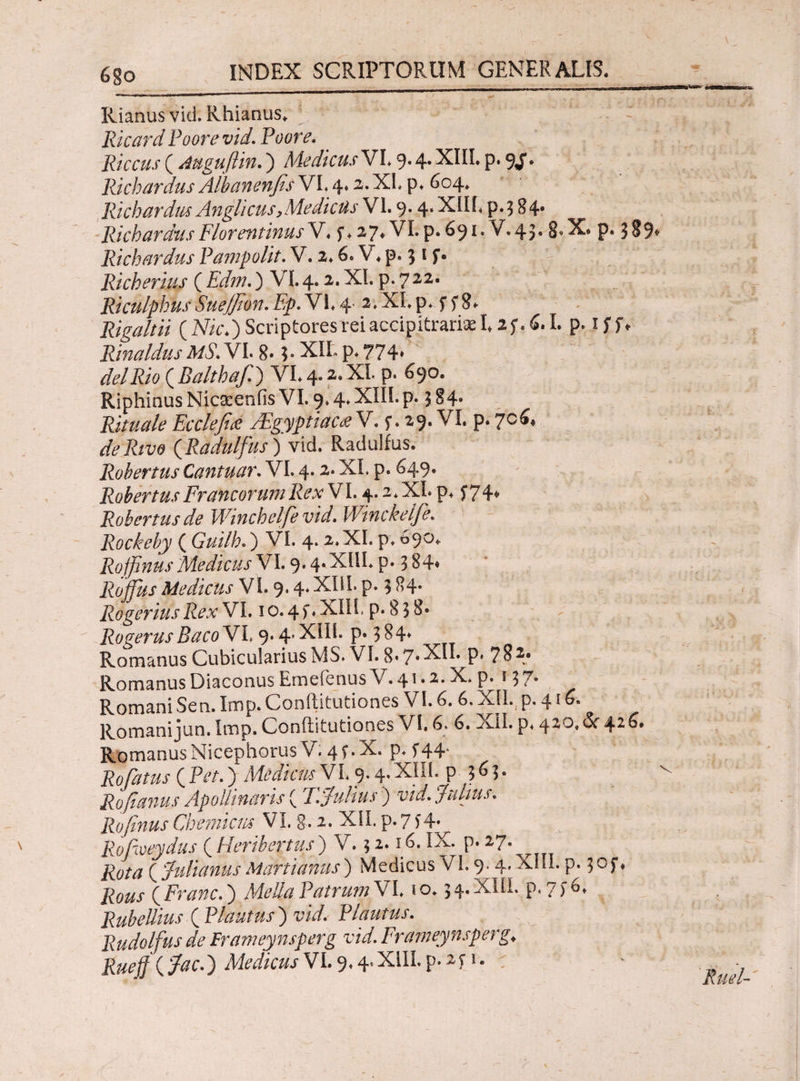 680 INDEX SCRIPTORUM GENERALIS.
Rianus vid. Rhianus.
Ricard Poore vid. Poore.
Riccus ( Augustin. ) Medicus VI. 9. 4. XIII. p. 95.
Richardus Albanensis VI. 4. 2. XI. p. 604.
Richardus Anglicus, Medicus VI. 9. 4. XIII. p. 384.
Richardus Florentinus V. 5. 27. VI. p. 691. V. 43. 8. X. p. 389.
Richardus Pampolit. V. 2. 6. V. p. 315.
Richerius ( Edm. ) VI. 4. 2. XI. p. 722.
Riculphus Suession. Ep. VI. 4. 2. XI. p. 558.
Rigaltii ( Nic. ) Scriptores rei accipitrariæ I. 25. 6. I. p. 155.
Rinaldus MS. VI. 8. 3. XII. p. 774.
del Rio ( Balthas. ) VI. 4. 2. XI. p. 690.
Riphinus Nicæensis VI. 9. 4. XIII. p. 384.
Rituale Ecclesiæ Ægyptiacæ V. 5. 29. VI. p. 706.
de Rivo ( Radulfus ) vid. Radulfus.
Robertus Cantuar. VI. 4. 2. XI. p. 649.
Robertus Francorum Rex VI. 4. 2. XI. p. 574.
Robertus de Winchelse vid. Winckelse.
Rockeby ( Guilh. ) VI. 4. 2. XI. p. 690.
Roffinus Medicus VI. 9. 4. XIII. p. 384.
Roffus Medicus VI. 9. 4. XIII. p. 384.
Rogerius Rex VI. 10. 45. XIII. p. 838.
Rogerus Baco VI. 9. 4. XIII. p. 384.
Romanus Cubicularius MS. VI. 8. 7. XII. p. 782.
Romanus Diaconus Emesenus V. 41. 2. X. p. 137.
Romani Sen. Imp. Constitutiones VI. 6. 6. XII. p. 416.
Romani jun. Imp. Constitutiones VI. 6. 6. XII. p. 420. & 426.
Romanus Nicephorus V. 45. X. p. 544.
Rosatus ( Pet. ) Medicus VI. 9. 4. XIII. p 363.
Rosianus Apollinaris ( T. Julius ) vid. Julius.
Rosinus Chemicus VI. 8. 2. XII. p. 754.
Rosweydus ( Heribertus ) V. 32. 16. IX. p. 27.
Rota ( Julianus Martianus ) Medicus VI. 9. 4. XIII. p. 305.
Rous ( Franc. ) Mella Patrum VI. 10. 34. XIII. p. 756.
Rubellius ( Plautus ) vid. Plautus.
Rudolfus de Frameynsperg vid. Frameynsperg.
Rueff ( Jac. ) Medicus VI. 9. 4. XIII. p. 251.
Ruel-